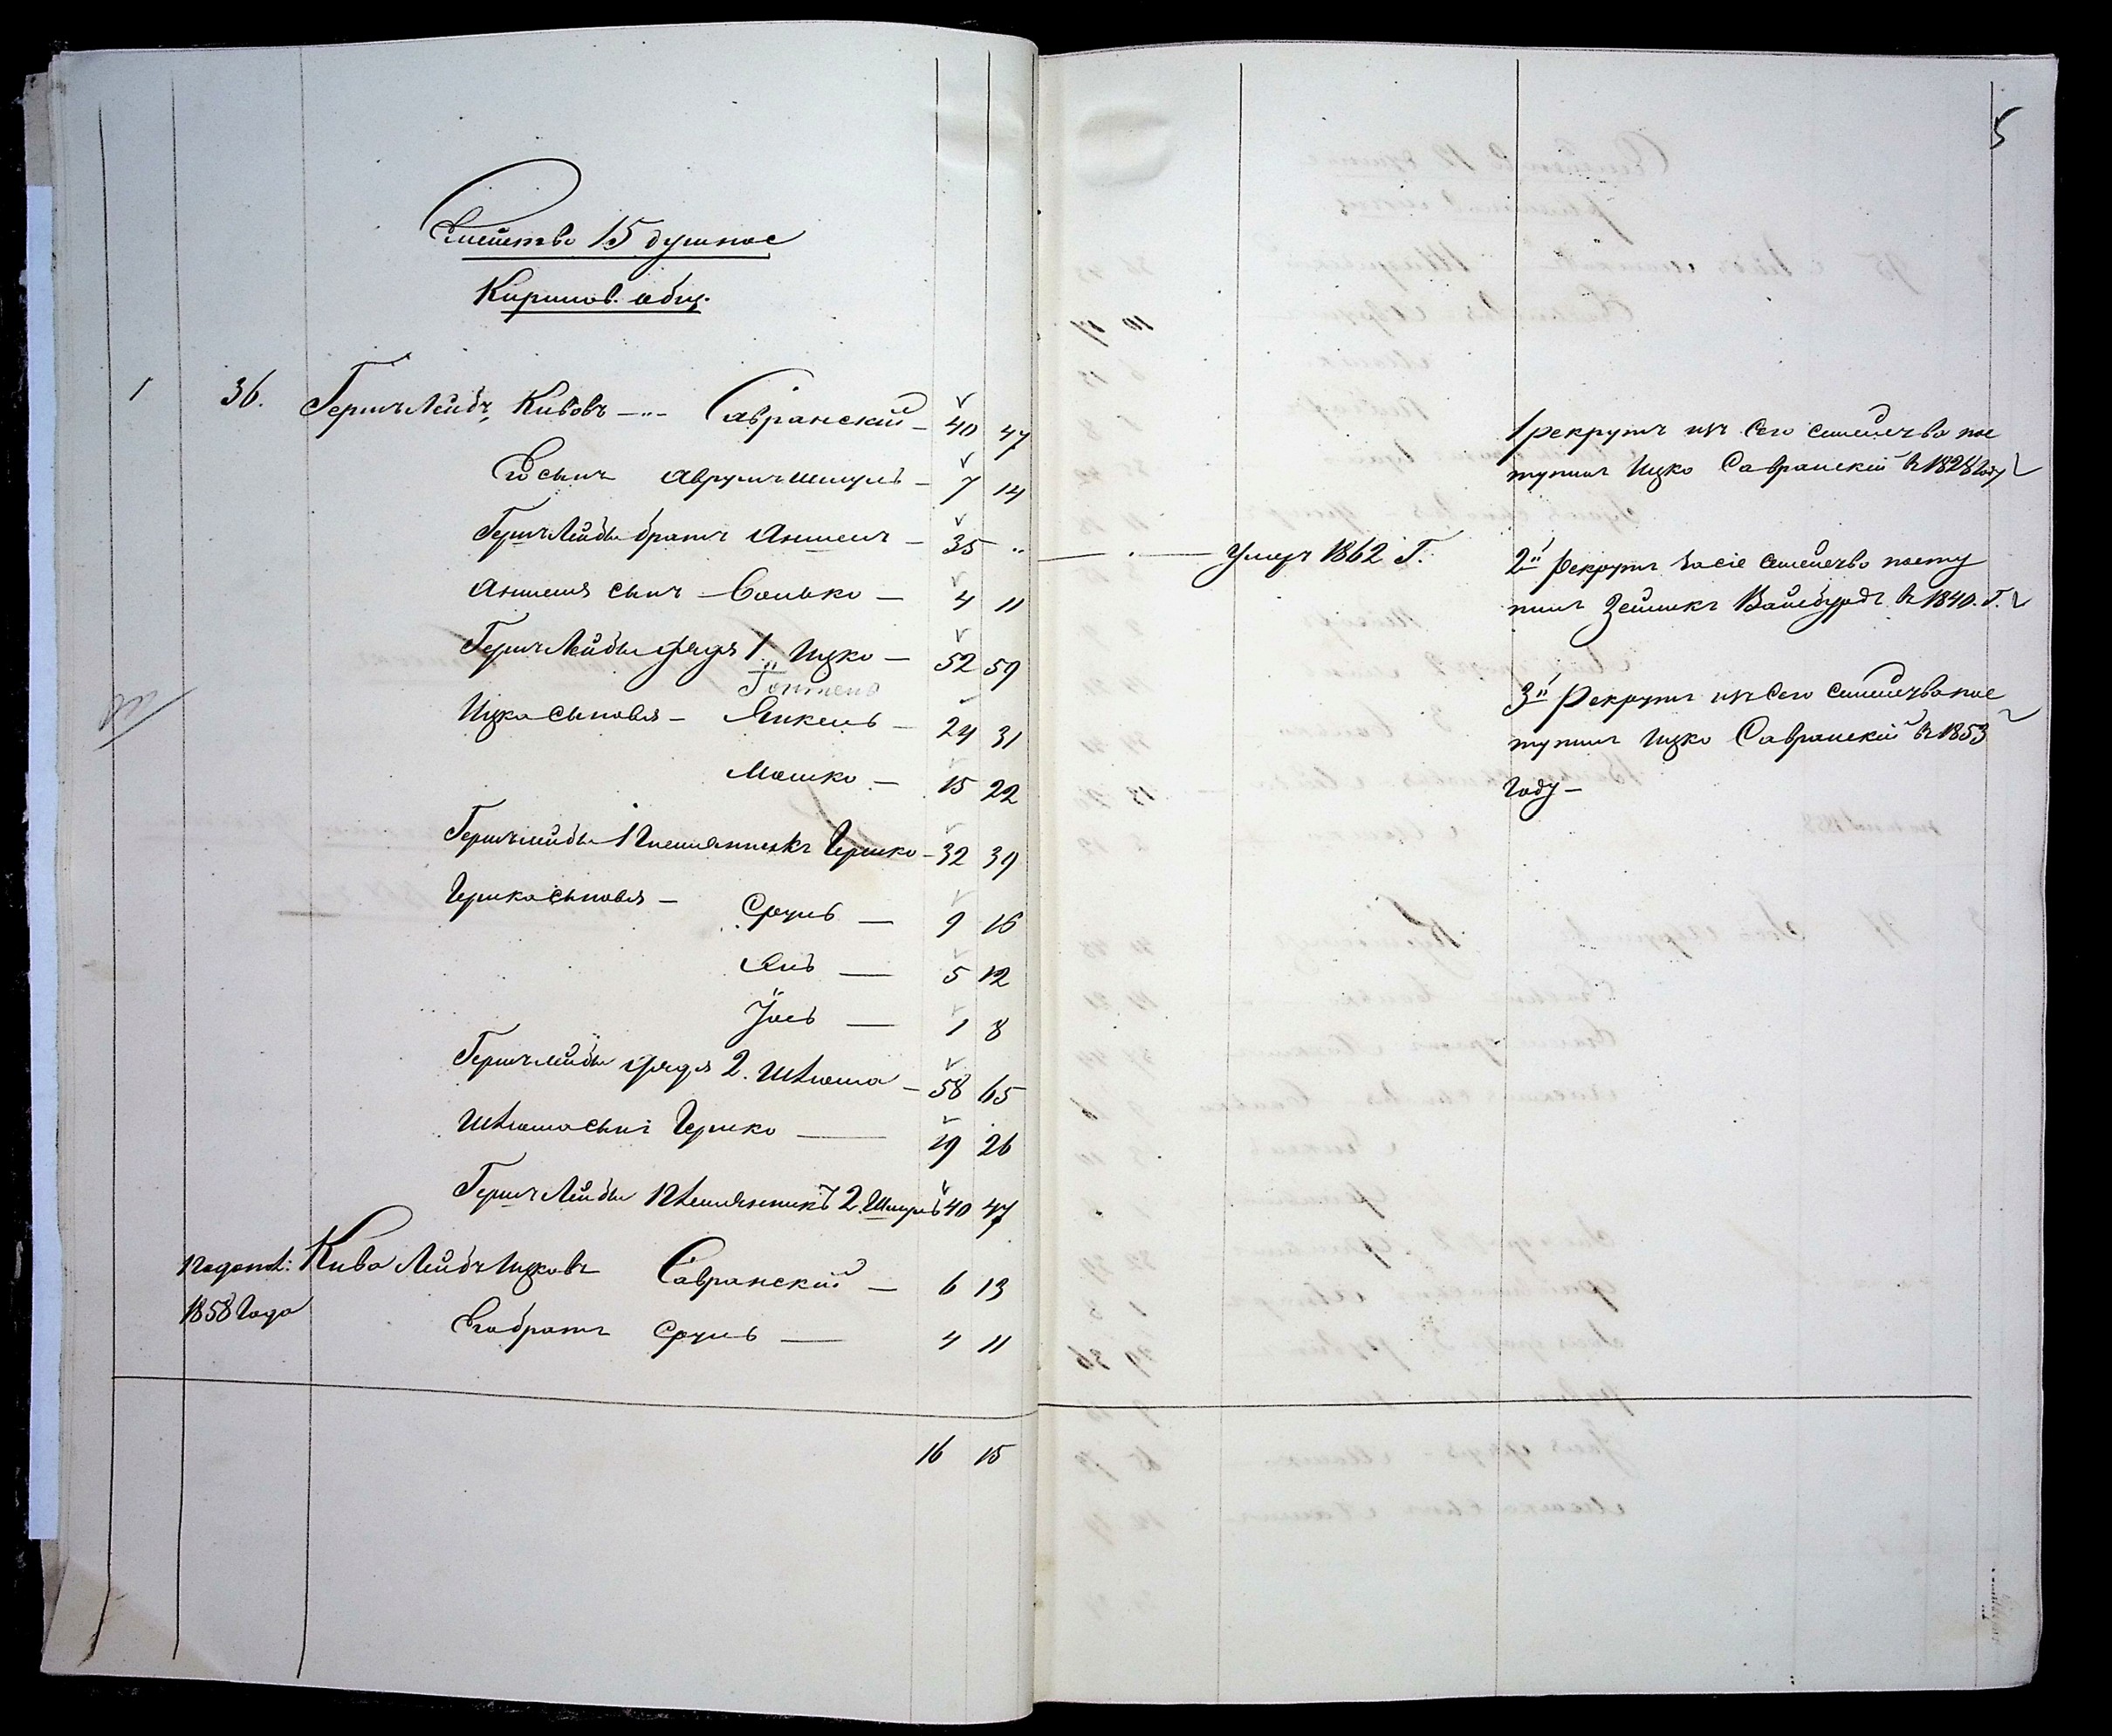 5
Семейство 15 душное
Киришов. общ.
1 36. Гершъ Лейбъ Кивовъ — Савранский — 40 47
Его сынъ Аврумъ Шмуль — 7 14
Гершъ Лейбы братъ Аншель — 35 „ — Умеръ 1862 Г.
Аншеля сынъ — Волько — 4 11
Гершъ Лейбы дядя 1й Ицко — 52 59
Ицка сыновья — Янкель — 24 31
Мошко — 15 22
Гершъ Лейбы 1 племянникъ Гершко — 32 39
Гершка сыновья — Сруль — 9 16
Янь — 5 12
Іось — 1 8
Гершъ Лейбы дядя 2. Шлиома — 58 65
Шлиома сынъ Гершко — 19 26
Гершъ Лейбы племянникъ 2. Шмуль 40 47
По допол: Кива Лейбъ Ицковъ Савранский — 6 13
1858 Года Его братъ Сруль — 4 11
16 15
1 рекрутъ изъ сего семейства пос
тупилъ Ицко Савранский въ 1828 году
2й Рекрутъ за сіе семейство посту
пилъ Зейликъ Вайсбурдъ въ 1840. Г.
3й Рекрутъ изъ сего семейства пос
тупилъ Ицко Савранский въ 1853
году —